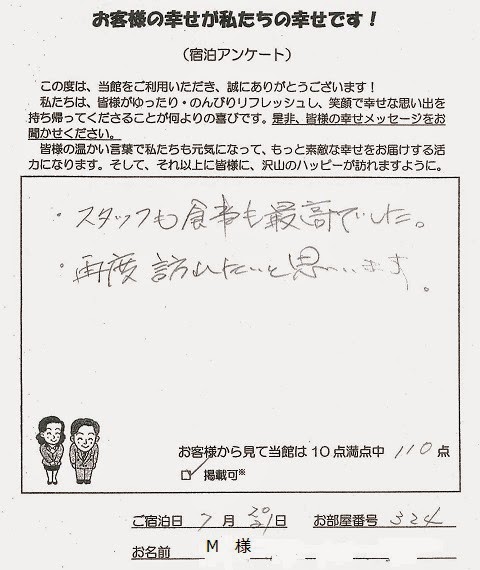 お客様の幸せが私たちの幸せです！
（宿泊アンケート）
この度は、当館をご利用いただき、誠にありがとうございます！
私たちは、皆様がゆったり・のんびりリフレッシュし、笑顔で幸せな思い出を
持ち帰ってくださることが何よりの喜びです。是非、皆様の幸せメッセージをお
聞かせください。
皆様の温かい言葉で私たちも元気になって、もっと素敵な幸せをお届けする活
力になります。そして、それ以上に皆様に、沢山のハッピーが訪れますように。
・スタッフも食事も最高でした。
・再度訪れたいと思います。
お客様から見て当館は10点満点中 110 点
掲載可※
ご宿泊日 7月20 21日 お部屋番号 324
お名前 M 様